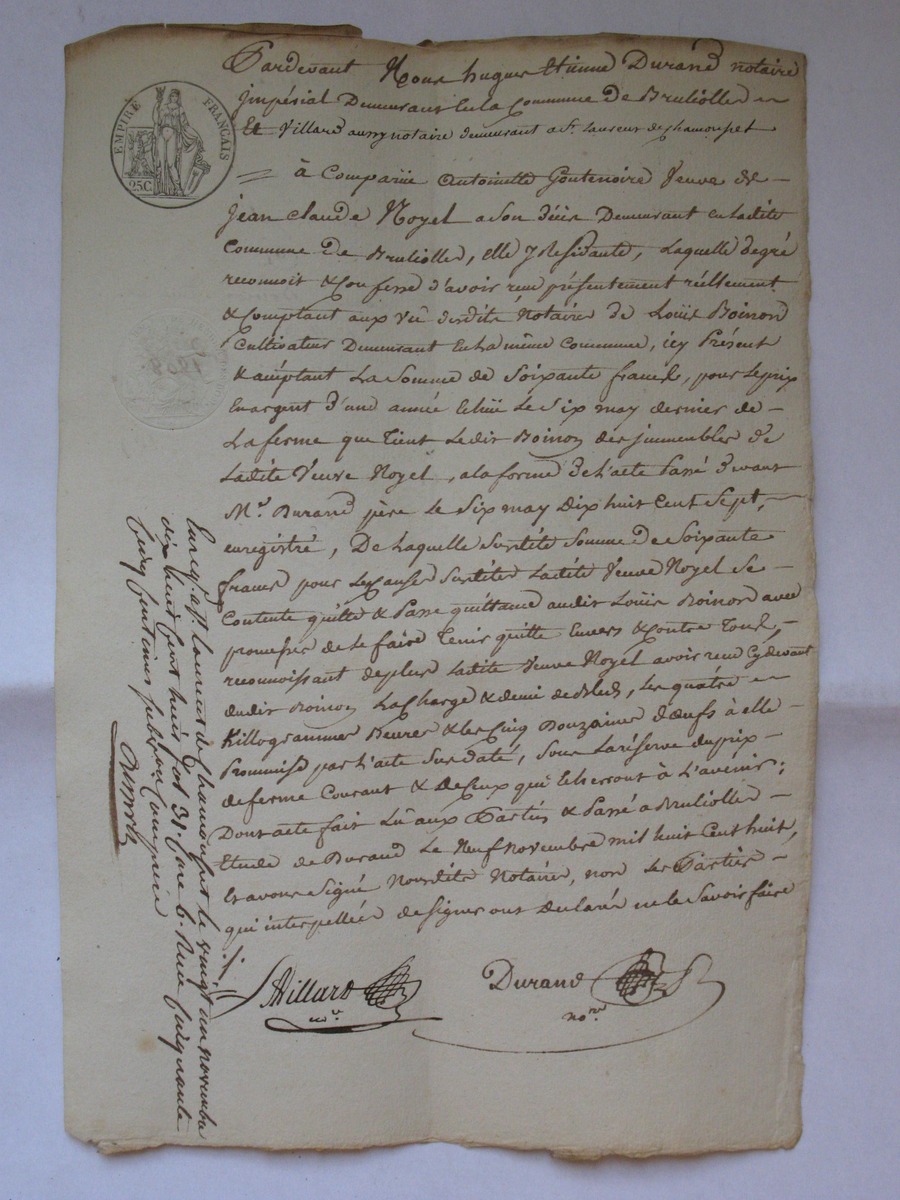 EMPIRE FRANÇAIS
25C.
Pardevant Nous hugues Etienne Durand notaire
jmpérial Demeurant En la Commune De Brullolles
Et Villard aussy notaire demeurant a St. Laurent de chamousset
à Comparüe Antoinette Goutenoire Veuve de
jean claude Noyel a son décès Demeurant en ladite
Commune De Brullolles, elle y Residante, Laquelle degré
reconnoit & Confesse d'avoir reçu présentement réellement
& Comptant aux vû desdits Notaires de Loüis Boinon
Cultivateur Demeurant En la même Commune, icy Présent
& acceptant La Somme de Soixante francs, pour le prix
En argent d'une année Echüe Le Six may dernier de
La ferme que Tient Ledit Boinon des jmmeubles de
Ladite Veuve Noyel, a la forme de L'acte Passé devant
Me. Durand père le Six may Dix huit Cent Sept,
enregistré, De Laquelle Susdite Somme de Soixante
francs pour les Causes Susdites Ladite Veuve Noyel Se
Contente quitte & Passe quittance audit Loüis Boinon avec
promesse de le faire Tenir quitte Envers & Contre Tous,
reconnoissant de plus Ladite Veuve Noyel avoir reçu Cy devant
dudit Boinon La Charge & demi de Bled, Les quatre
Killogrammes Beurre & les Cinq Douzaines d'oeufs à elle
Promis par L'acte Sus daté, Sous La réserve du prix
de ferme Courant & De Ceux qui Echerront à L'avenir;
Dont acte fait Lû aux Parties & Passé a Brullolles
Etude de Durand Le Neuf Novembre mil huit Cent huit,
Et avons Signé Nousdits Notaires, non Les Parties
qui interpellées de signer ont Déclaré ne le Savoir faire
Villard
Durand
nore
Enreg. a St. Laurent de Chamousset le vingt un novembre
dix huit Cent huit fol 39. Case 6. Reçu Cinquante
Cinq Centimes Subvention Comprise